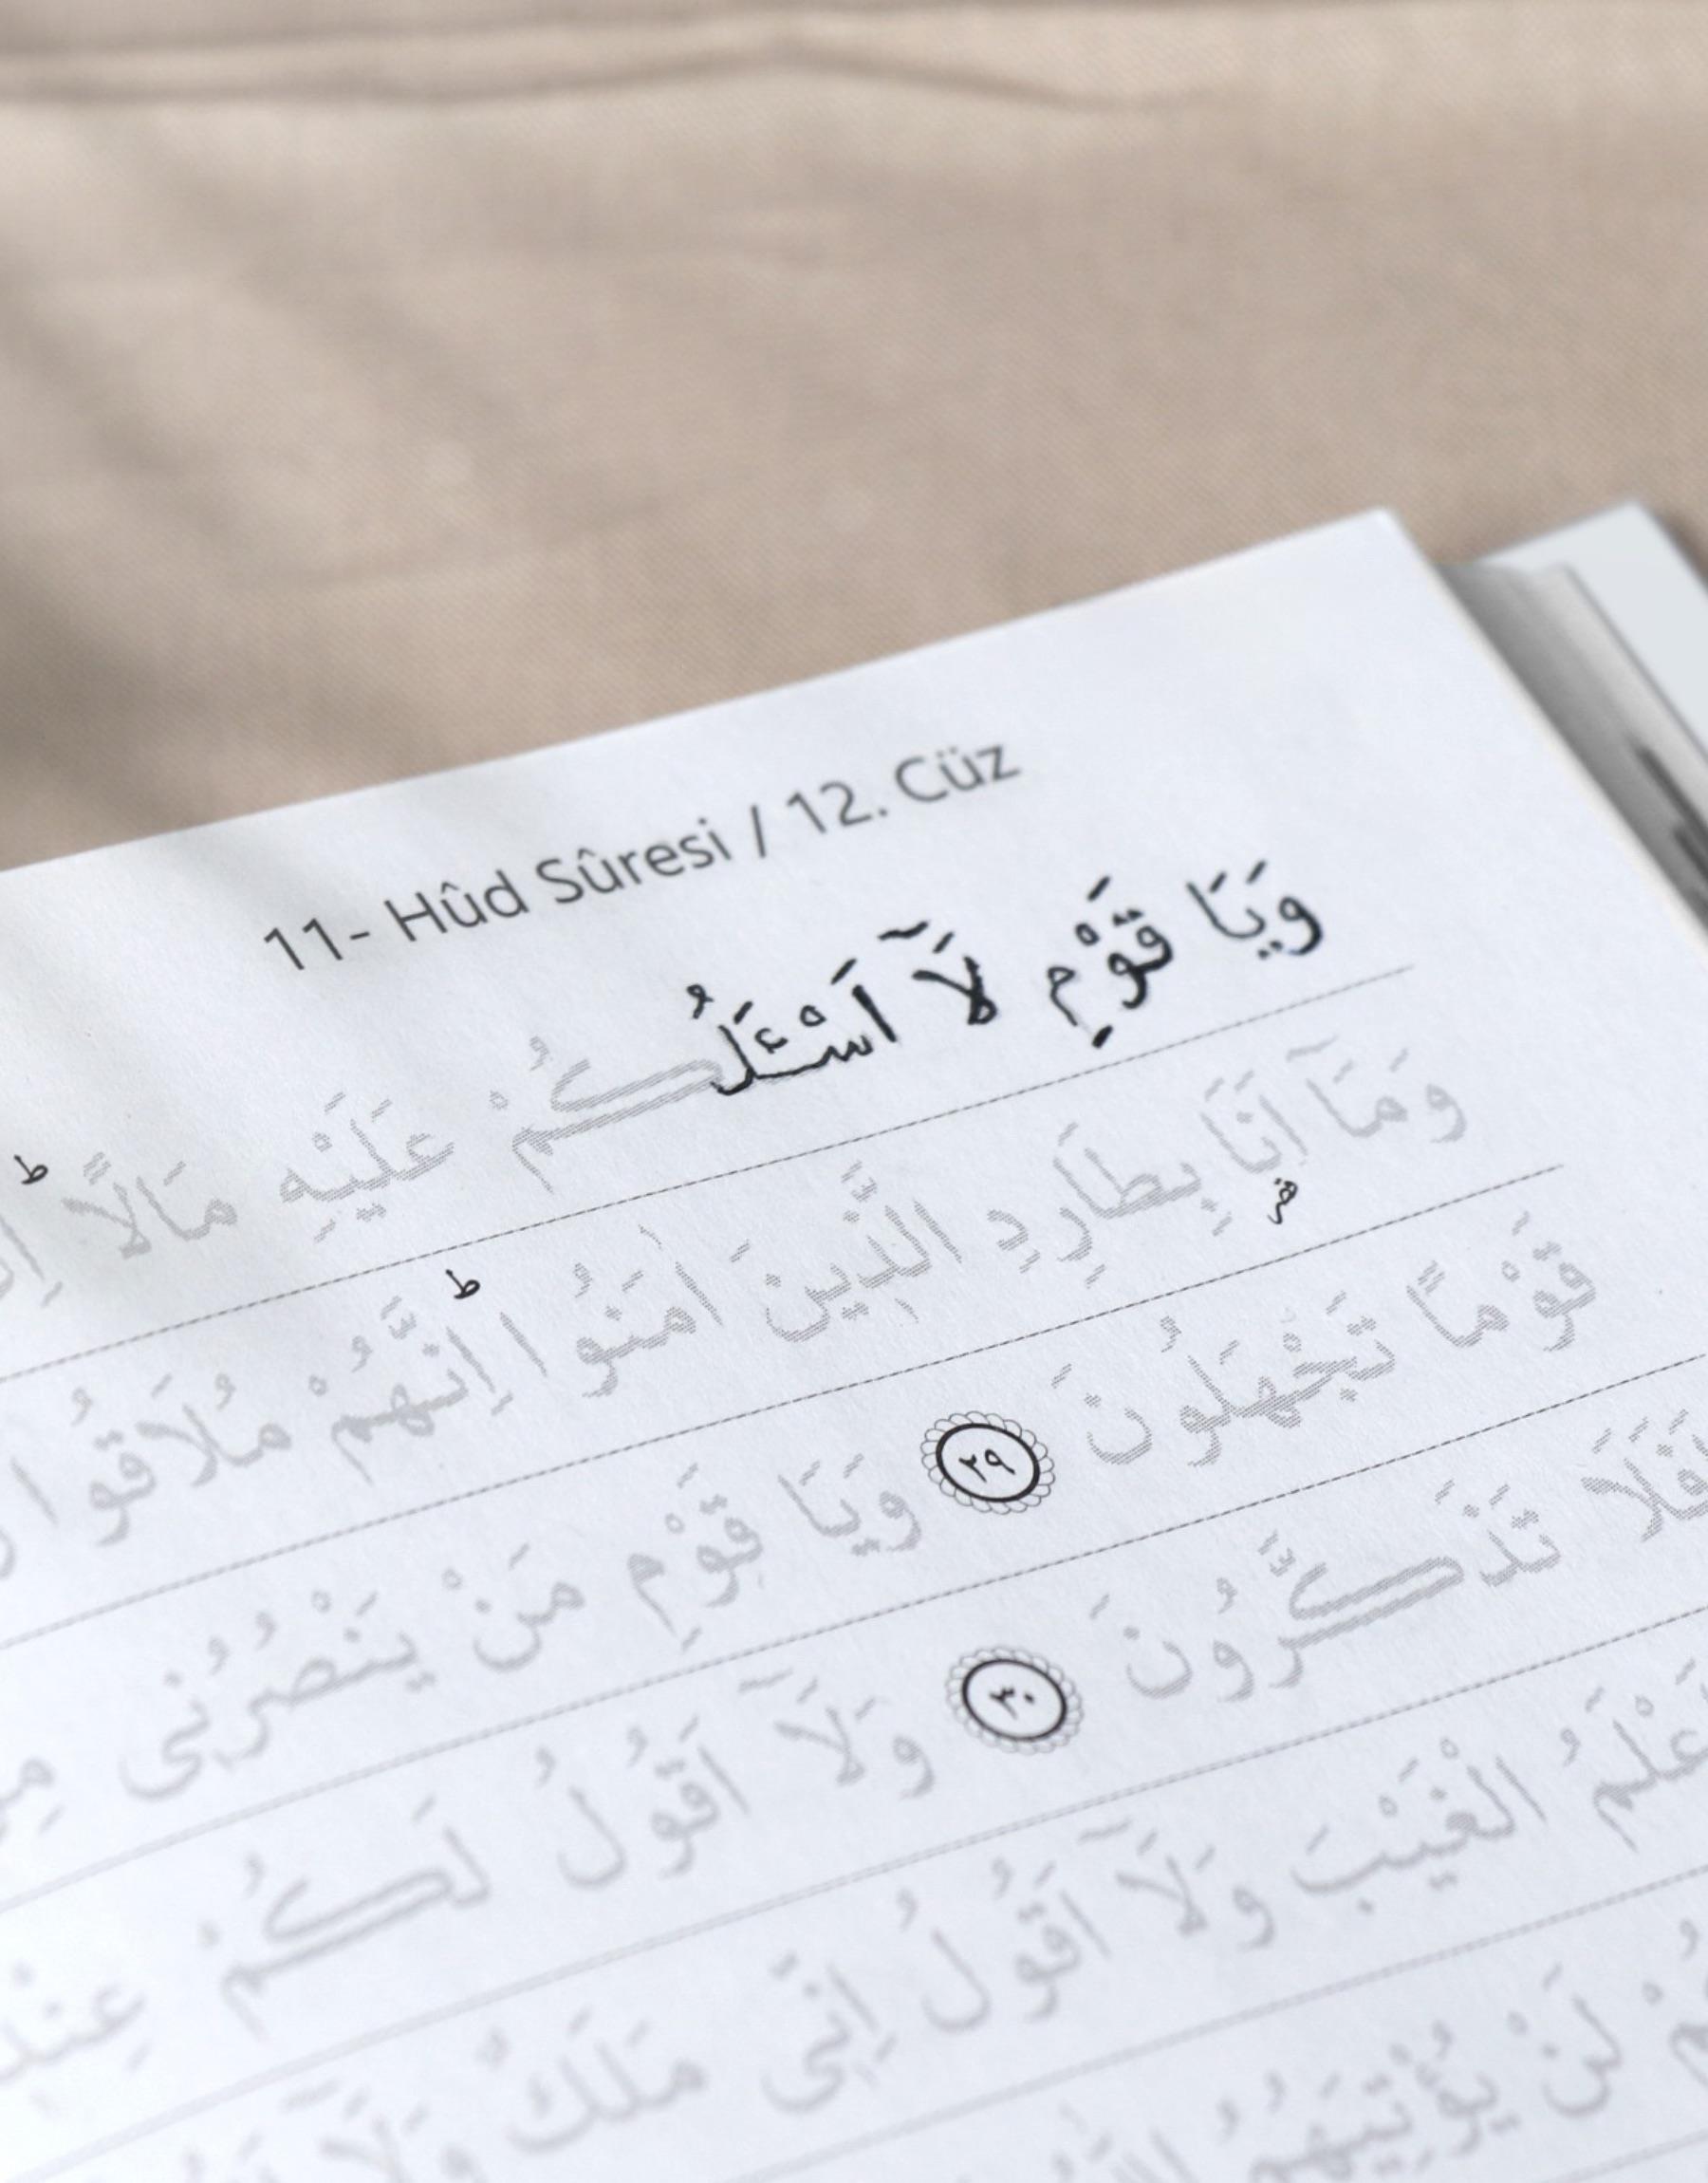 11- Hûd Sûresi / 12. Cüz
وَيَا قَوْمِ لَآ اَسْـَٔلُكُمْ عَلَيْهِ مَالًا ط
وَمَآ اَنَا۬ بِطَارِدِ الَّذ۪ينَ اٰمَنُوا ط اِنَّهُمْ مُلَاقُوا
قَوْمًا تَجْهَلُونَ ٢٩ وَيَا قَوْمِ مَنْ يَنْصُرُنٖى
اَفَلَا تَذَكَّرُونَ ٣٠ وَلَآ اَقُولُ لَكُمْ
اَعْلَمُ الْغَيْبَ وَلَآ اَقُولُ اِنّٖى مَلَكٌ وَلَآ
لَنْ يُؤْتِيَهُمُ